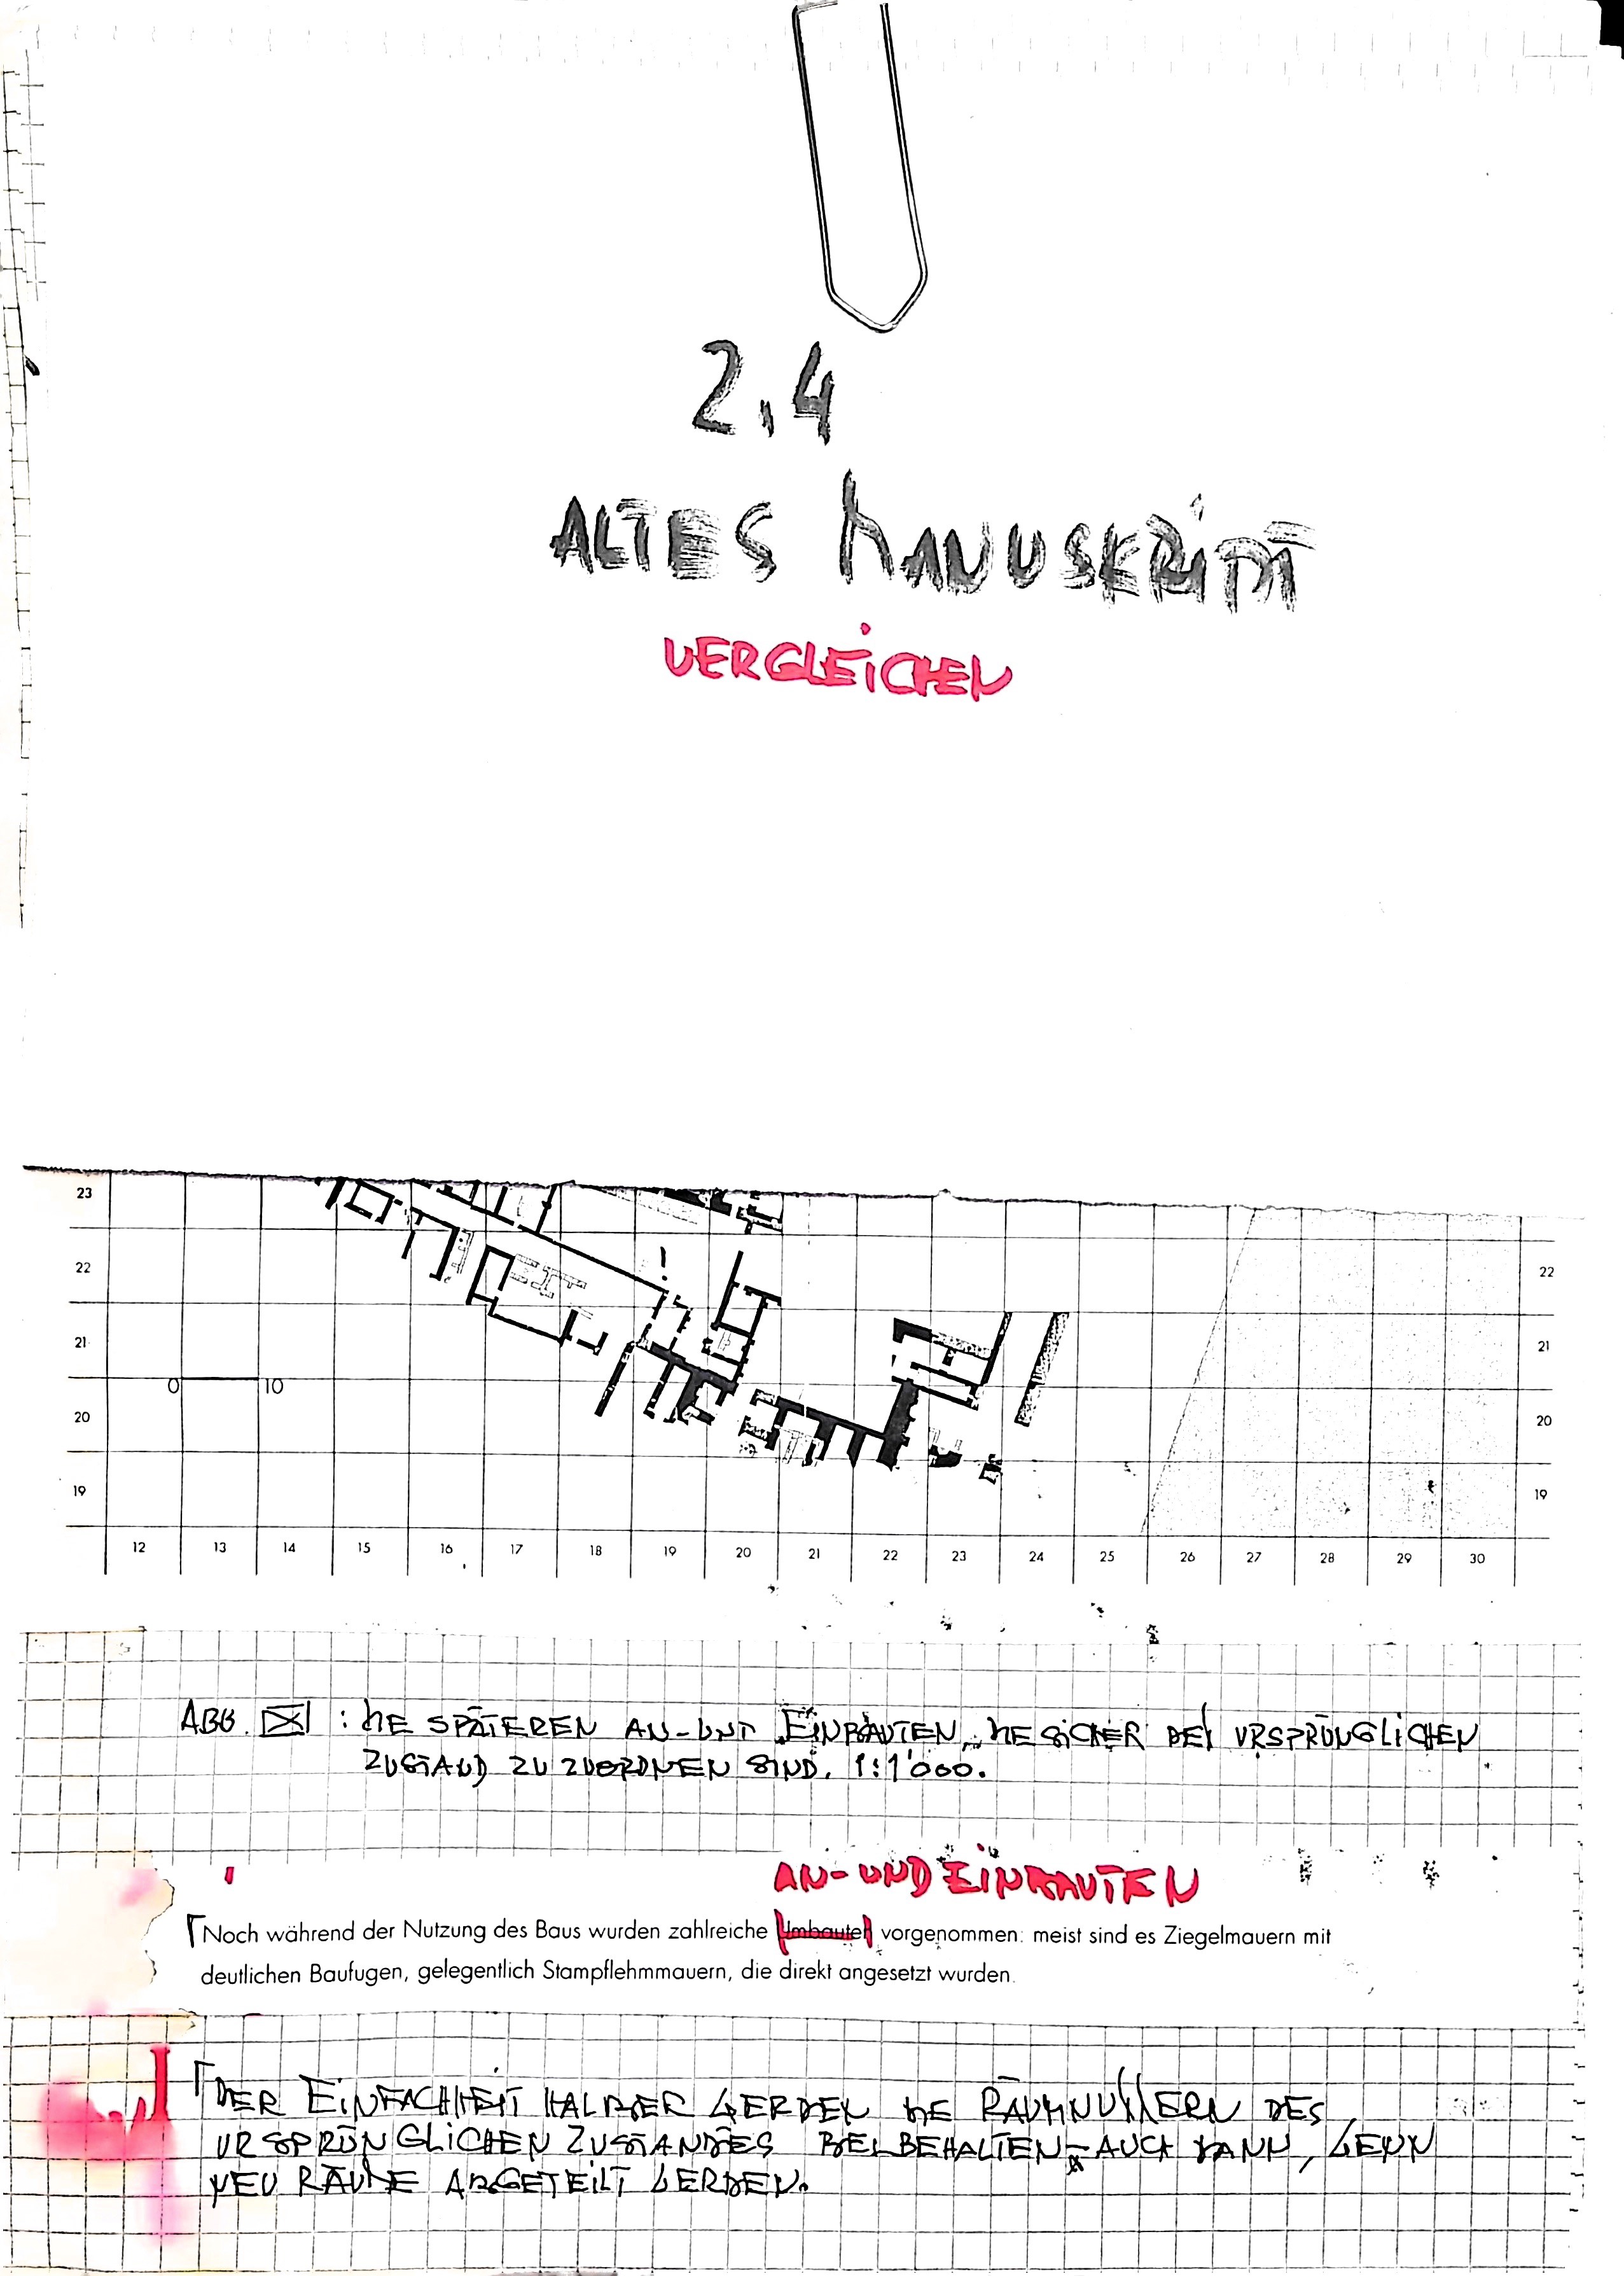 2.4
ALTES MANUSKRIPT
VERGLEICHEN
23
22 22
21 21
0 10
20 20
19 19
12 13 14 15 16 17 18 19 20 21 22 23 24 25 26 27 28 29 30
ABB. : DIE SPÄTEREN AN- UND EINBAUTEN, DIE SICHER DEM URSPRÜNGLICHEN
ZUSTAND ZUZUORDNEN SIND. 1:1'000.
AN- UND EINBAUTEN
Noch während der Nutzung des Baus wurden zahlreiche Umbauten vorgenommen: meist sind es Ziegelmauern mit
deutlichen Baufugen, gelegentlich Stampflehmmauern, die direkt angesetzt wurden.
DER EINFACHHEIT HALBER WERDEN DIE RAUMNUMMERN DES
URSPRÜNGLICHEN ZUSTANDES BEIBEHALTEN - AUCH DANN, WENN
NEU RÄUME ABGETEILT WERDEN.